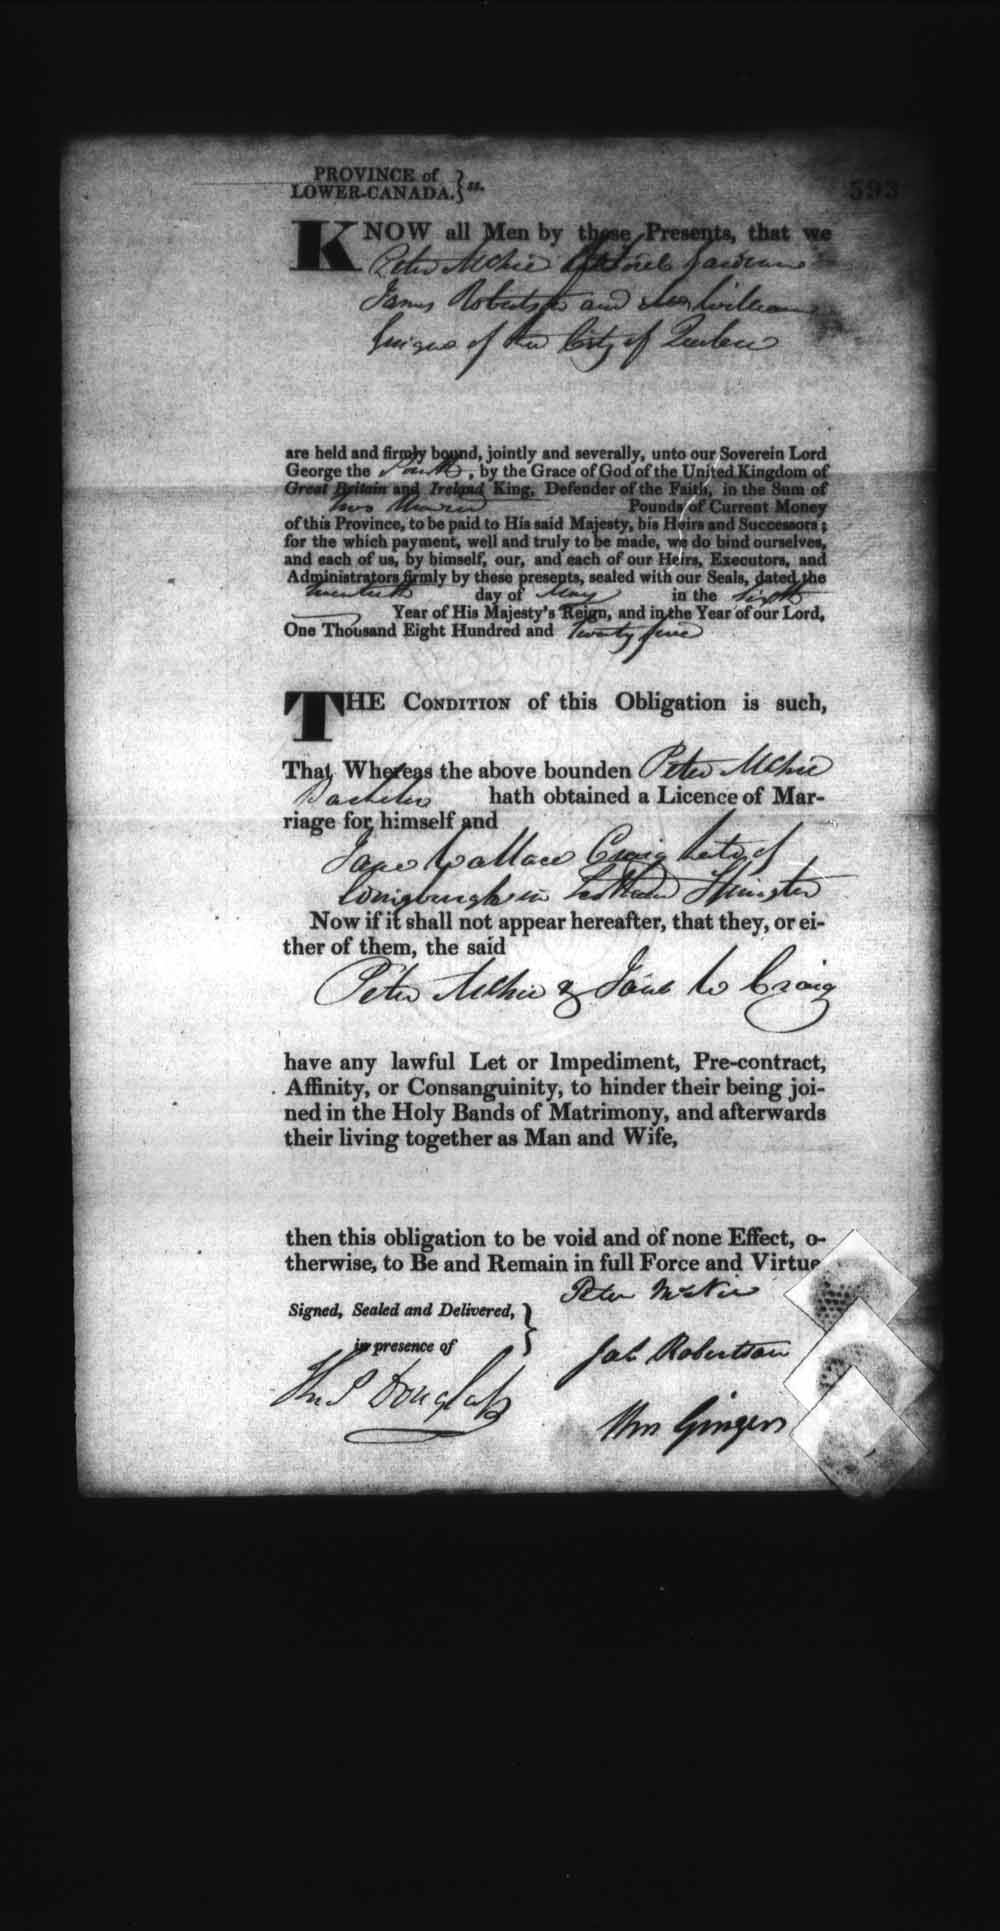 PROVINCE of
LOWER-CANADA. } ss.
593
KNOW all Men by these Presents, that we
Peter McKie of Sorel
James Robertson and William
of the City of Quebec
are held and firmly bound, jointly and severally, unto our Soverein Lord
George the Fourth, by the Grace of God of the United Kingdom of
Great Britain and Ireland King, Defender of the Faith, in the Sum of
Pounds of Current Money
of this Province, to be paid to His said Majesty, his Heirs and Successors;
for the which payment, well and truly to be made, we do bind ourselves,
and each of us, by himself, our, and each of our Heirs, Executors, and
Administrators firmly by these presents, sealed with our Seals, dated the
twentieth day of May in the sixth
Year of His Majesty's Reign, and in the Year of our Lord,
One Thousand Eight Hundred and twenty five
THE CONDITION of this Obligation is such,
That Whereas the above bounden Peter McKie
Bachelor hath obtained a Licence of Mar-
riage for himself and
Jane Wallace Craig late of
in Scotland Spinster
Now if it shall not appear hereafter, that they, or ei-
ther of them, the said
Peter McKie & Jane W Craig
have any lawful Let or Impediment, Pre-contract,
Affinity, or Consanguinity, to hinder their being joi-
ned in the Holy Bands of Matrimony, and afterwards
their living together as Man and Wife,
then this obligation to be void and of none Effect, o-
therwise, to Be and Remain in full Force and Virtue
Peter McKie
Signed, Sealed and Delivered, }
in presence of
Jas Robertson
Ths Douglass
Wm Ginger